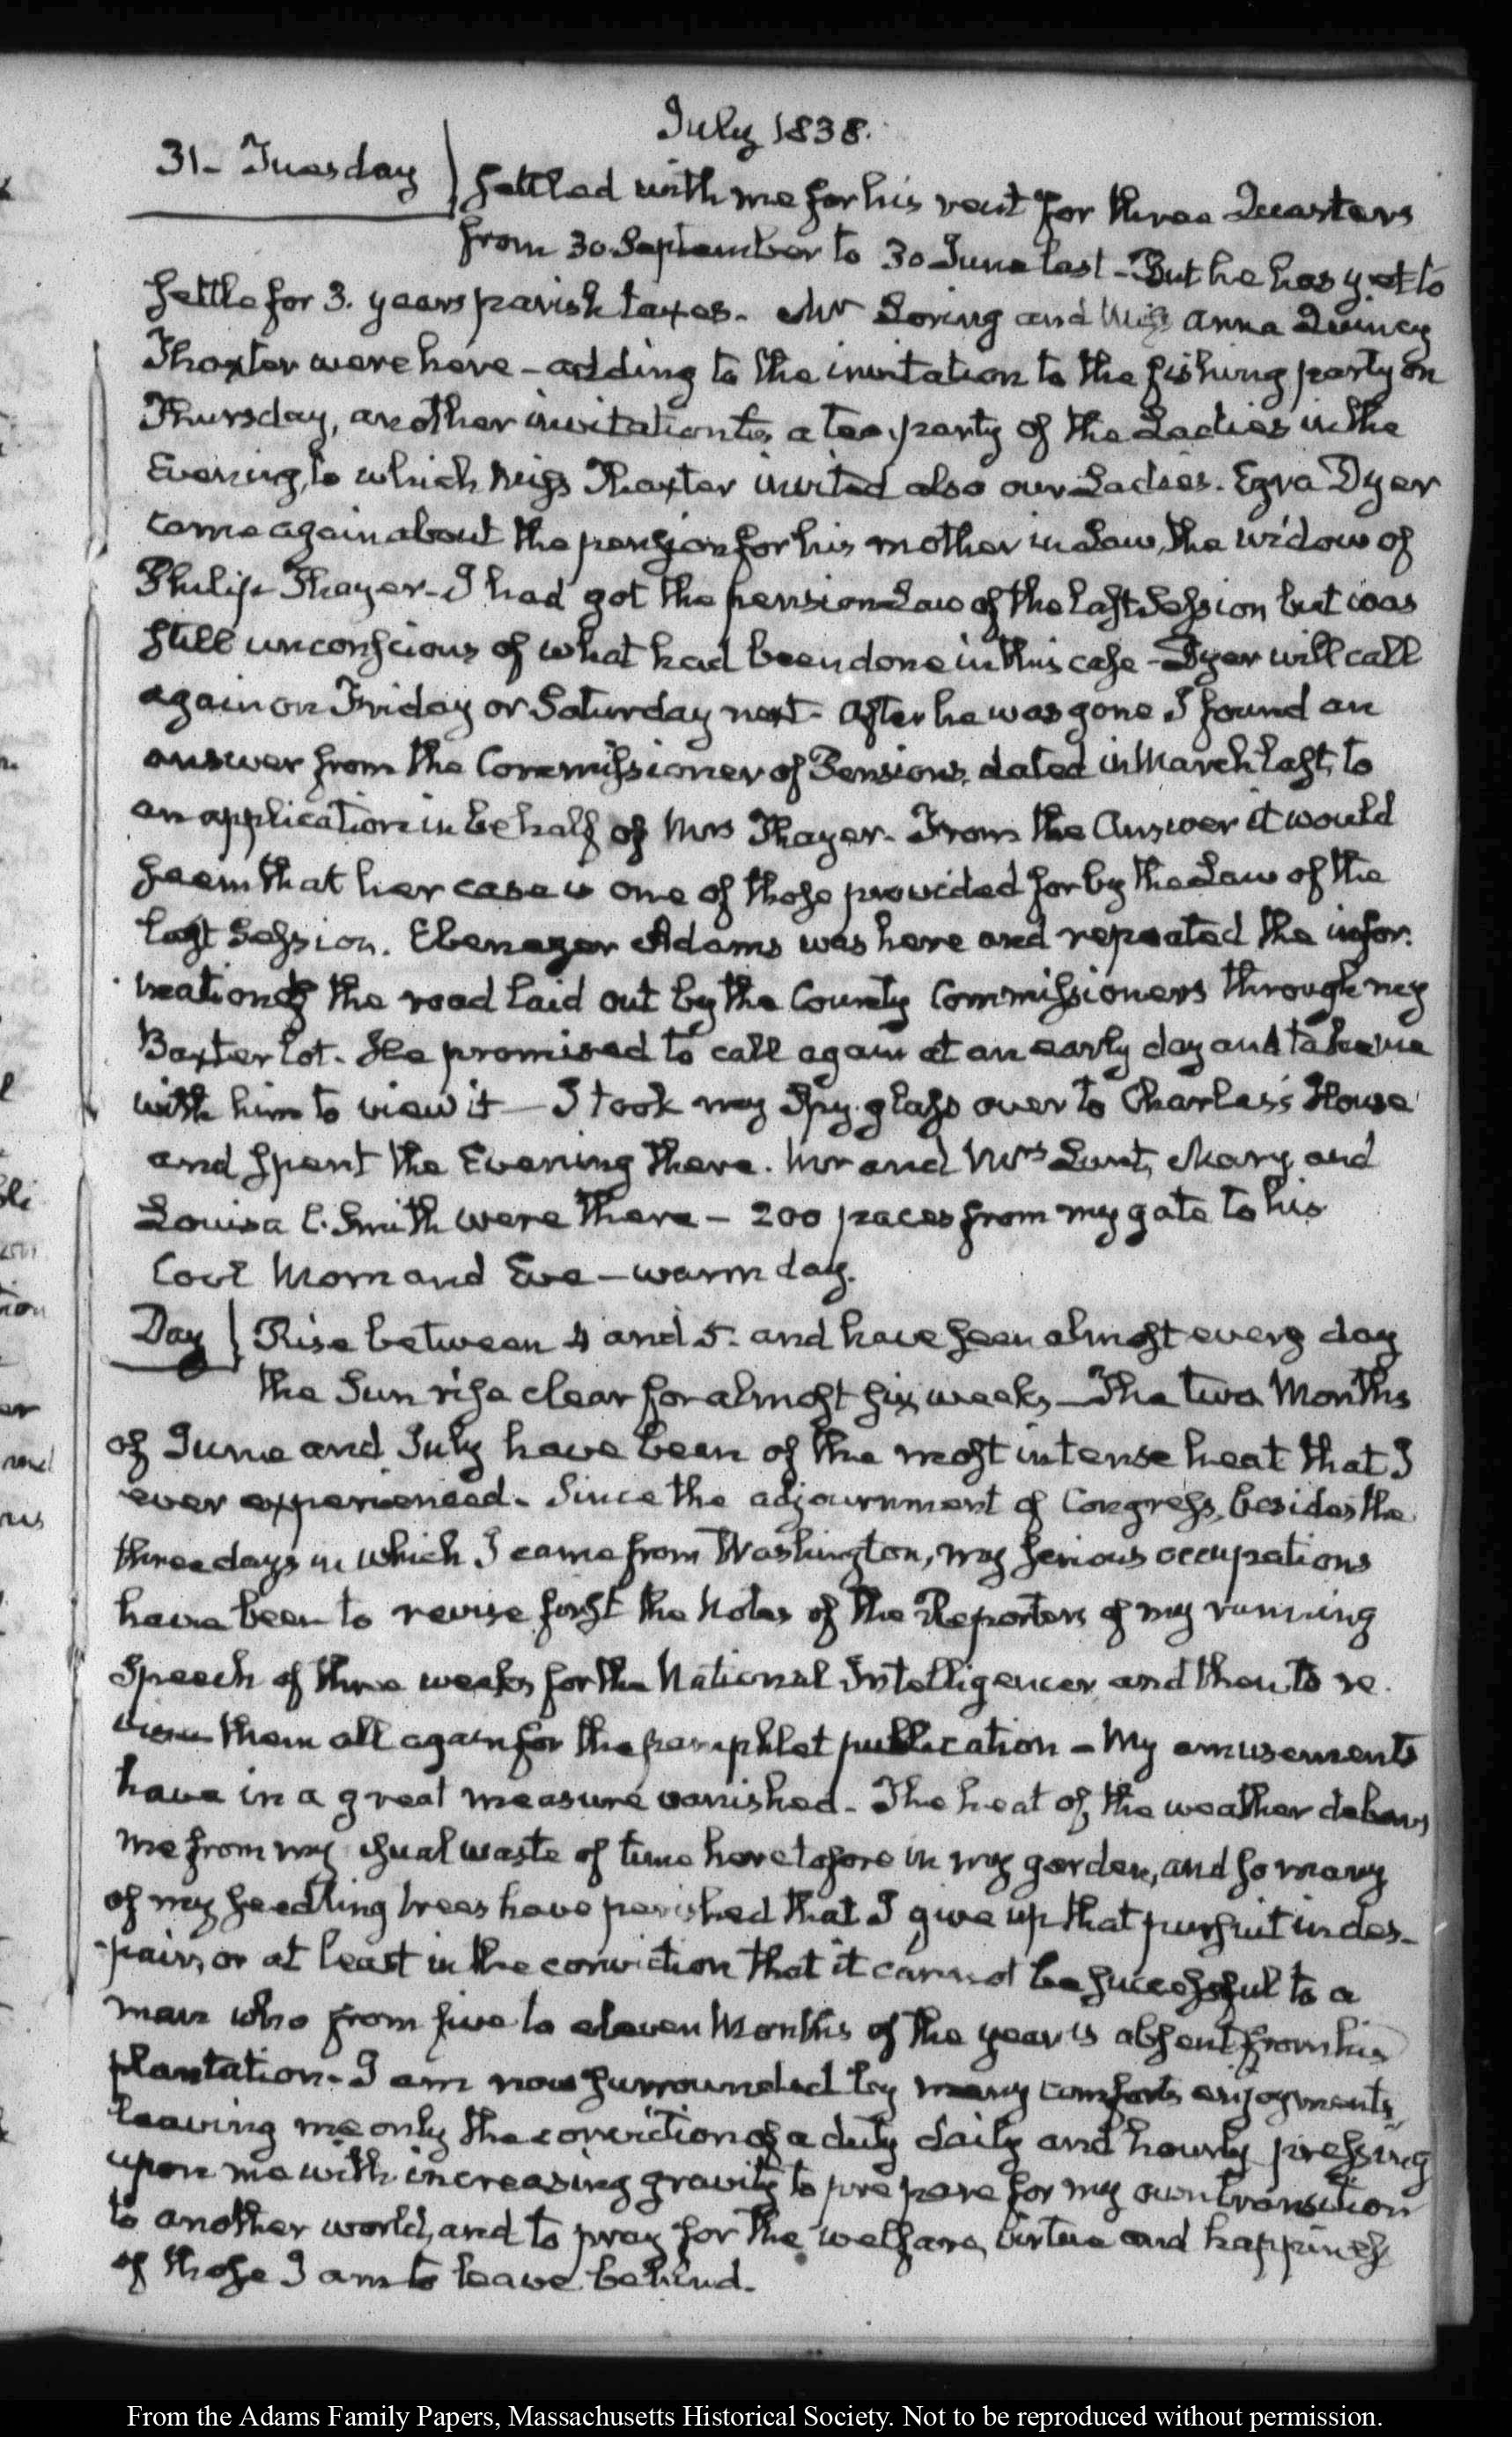 July 1838.
31- Tuesday
settled with me for his rent for three Quarters
from 30 September to 30 June last - But he has yet to
settle for 3. years parish taxes. Mr Loring and Miss Anna Quincy
Thaxter were here - adding to the invitation to the fishing party on
Thursday, another invitation to a tea party of the Ladies in the
Evening, to which Miss Thaxter invited also our Ladies. Ezra Dyer
came again about the pension for his mother in Law, the widow of
Philip Thayer - I had got the pension Law of the last Session but was
still unconscious of what had been done in this case - Dyer will call
again on Friday or Saturday next - After he was gone I found an
answer from the Commissioner of Pensions, dated in March last, to
an application in behalf of Mrs Thayer - From the Answer it would
seem that her case is one of those provided for by the Law of the
last Session. Ebenezer Adams was here and repeated the infor-
mation of the road laid out by the County Commissioners through my
Baxter lot. He promised to call again at an early day and take me
with him to view it — I took my Spy-glass over to Charles's House
and spent the Evening there. Mr and Mrs Lunt, Mary and
Louisa C. Smith were there - 200 paces from my gate to his
Cool Morn and Eve - warm day.
Day
Rise between 4 and 5. and have seen almost every day
the Sun rise clear for almost six weeks - The two Months
of June and July have been of the most intense heat that I
ever experienced - Since the adjournment of Congress, besides the
three days in which I came from Washington, my serious occupations
have been to revise first the Notes of the Reporters of my running
Speech of three weeks for the National Intelligencer and then to re-
view them all again for the pamphlet publication - My amusements
have in a great measure vanished - The heat of the weather debars
me from my usual waste of time heretofore in my garden, and so many
of my seedling trees have perished that I give up that pursuit in des-
-pair, or at least in the conviction that it cannot be successful to a
man who from five to eleven Months of the year is absent from his
plantation - I am now surrounded by many comforts enjoyments,
leaving me only the conviction of a duty daily and hourly pressing
upon me with increasing gravity to prepare for my own transition
to another world, and to pray for the welfare, virtue and happiness
of those I am to leave behind.
From the Adams Family Papers, Massachusetts Historical Society. Not to be reproduced without permission.